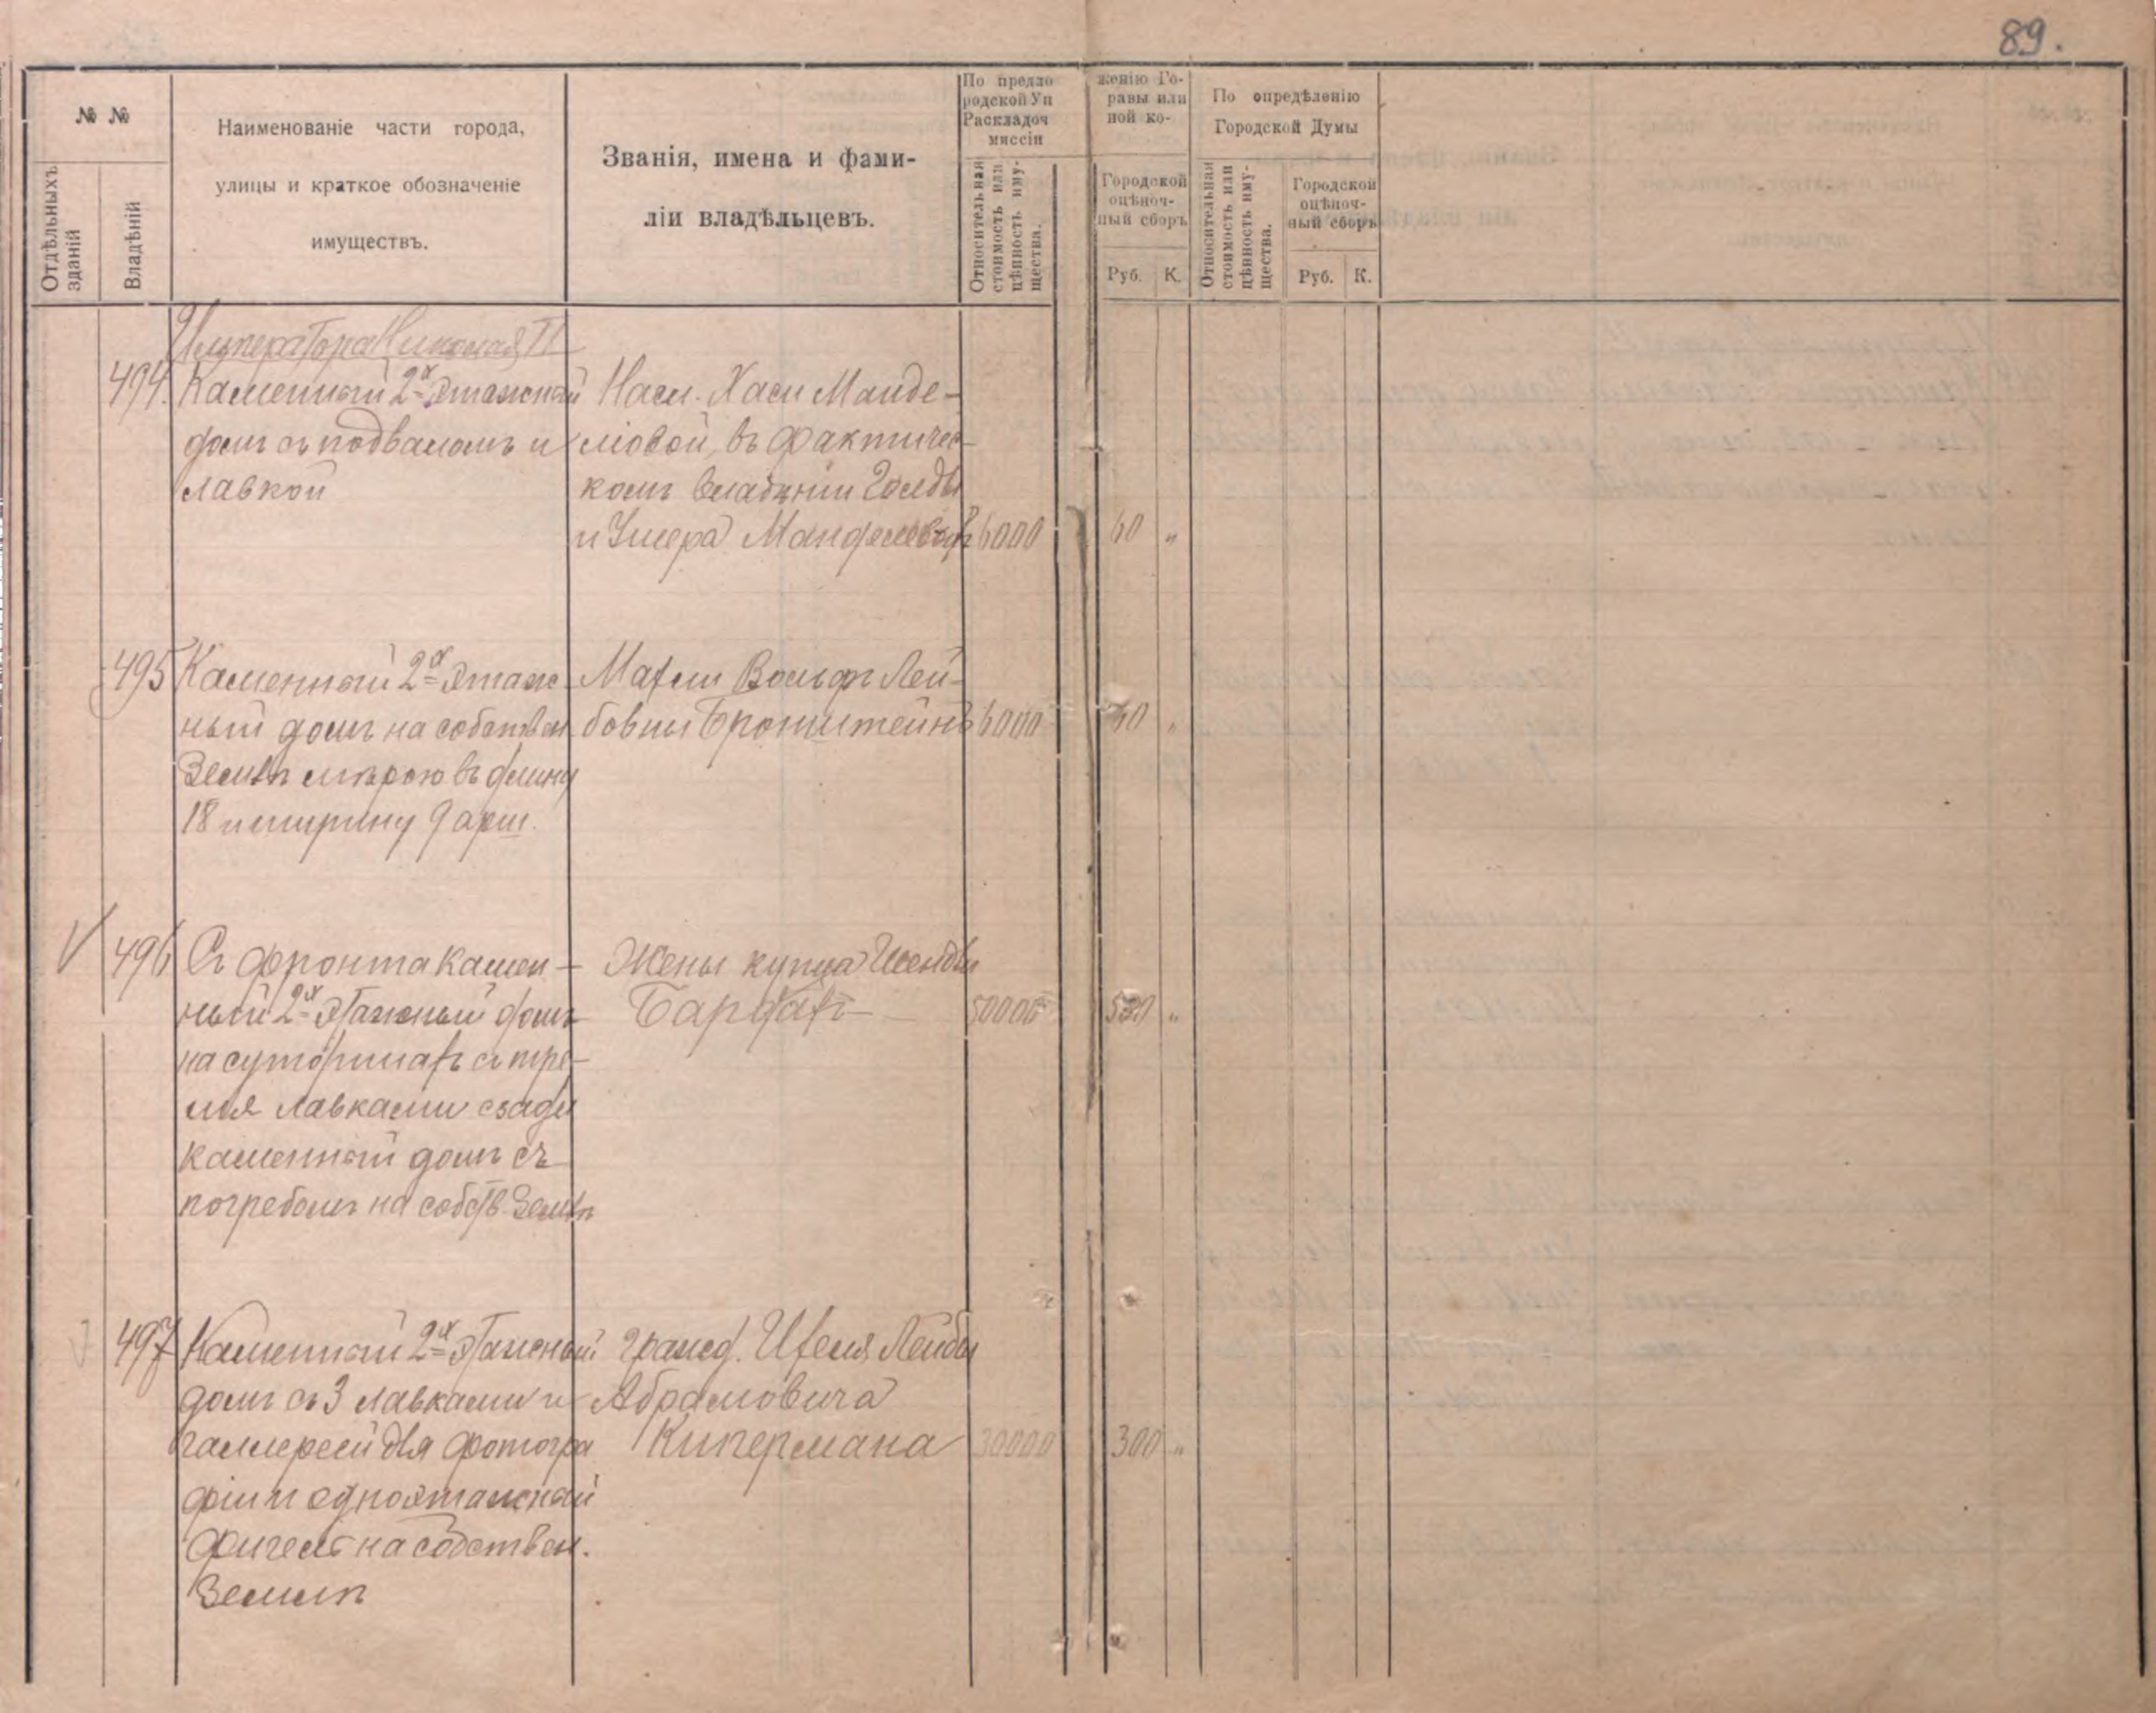 89.
№ №
Отдѣльныхъ зданій
Владѣній
Наименованіе части города,
улицы и краткое обозначеніе
имуществъ.
Званія, имена и фами-
ліи владѣльцевъ.
По предло
родской Уп
Раскладоч
миссіи
женію Го-
равы или
ной ко-
Относительная
стоимость или
цѣнность иму-
щества.
Городской
оцѣноч-
ный сборъ
Руб. К.
По опредѣленію
Городской Думы
Относительная
стоимость или
цѣнность иму-
щества.
Городской
оцѣноч-
ный сборъ
Руб. К.
Императора Николая II
494. Каменный 2х этажный
домъ съ подваломъ и
лавкой
Насл. Хаси Манде-
ловой, въ фактичес-
комъ владѣніи Голды
и Умера 6000 60 "
495 Каменный 2х этаж
ный домъ на собствен
землѣ мѣрою въ длину
18 и ширину 9 арш.
Вольфъ Лей-
бовны Бронштейнъ 6000 60 "
496 Съ фронта камен-
ный 2х этажный домъ
на суторинахъ съ тре-
мя лавками сзади
каменный домъ съ
погребомъ на собств. землѣ
Жены купца Шендли
50000 "
497 Каменный 2х этажный
домъ съ 3 лавками и
галлереей для фотогра
фіи и одноэтажный
флигель на собствен.
землѣ
гражд. Лейбы
Абрамовича
Кипермана 30000 300 "